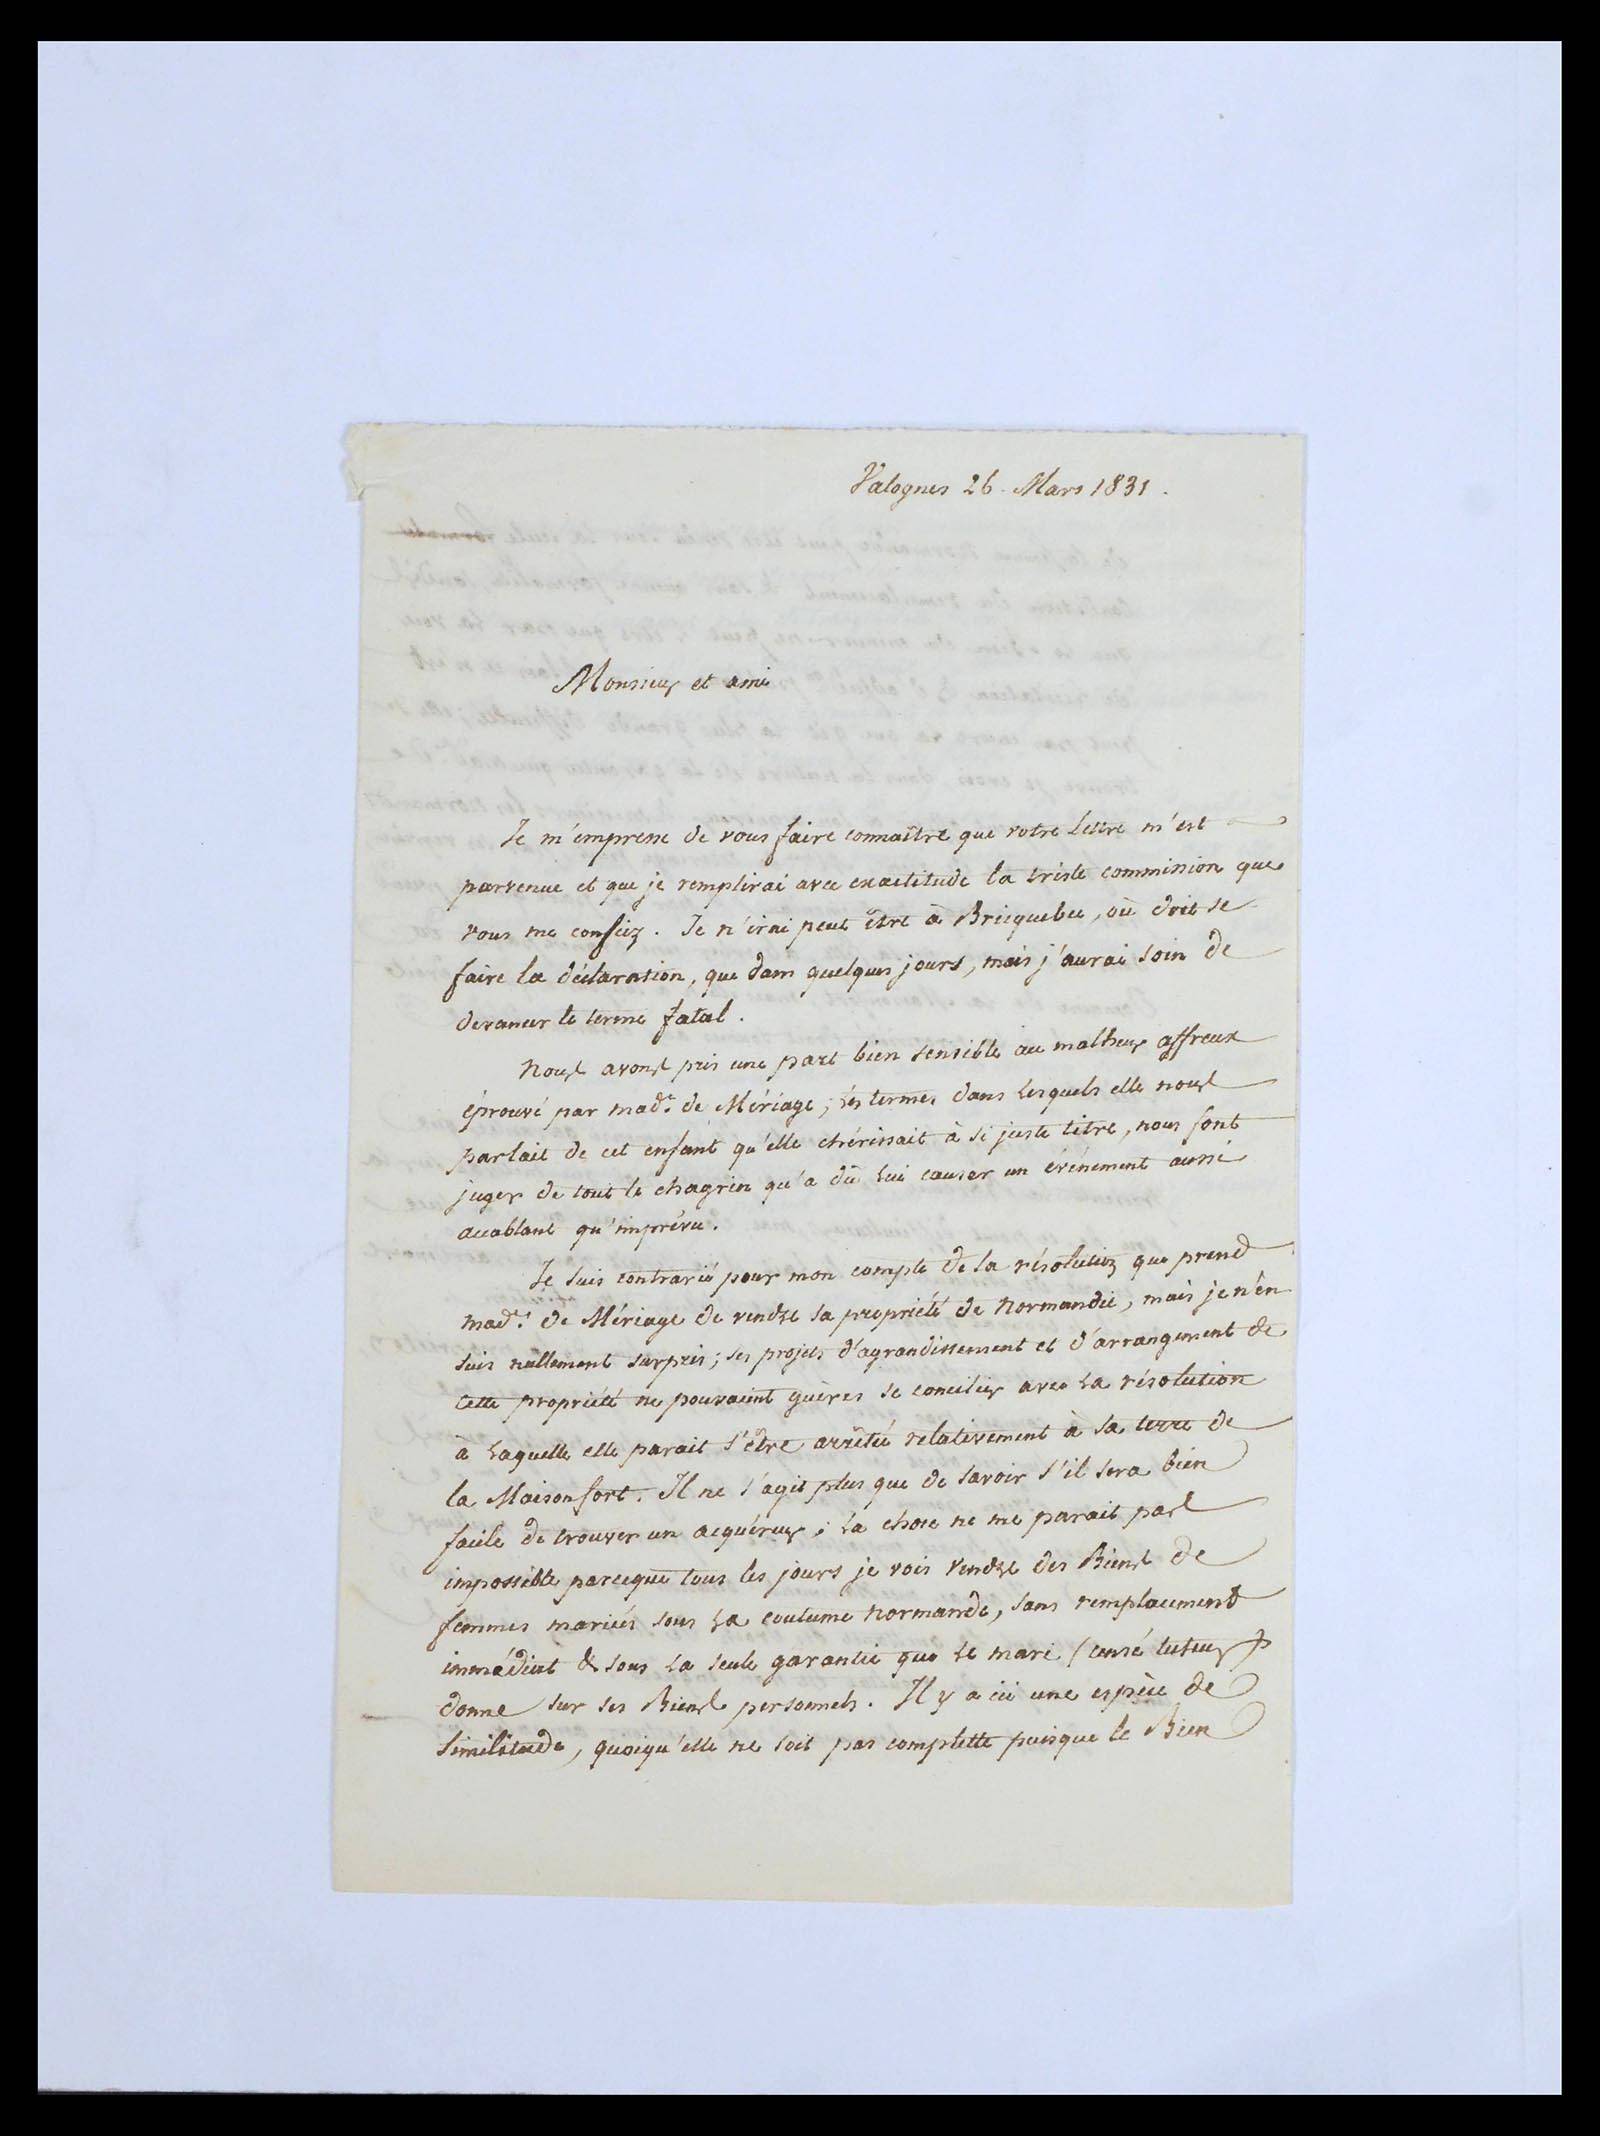 Valognes 26 Mars 1831.
Monsieur et ami
Je m'empresse de vous faire connaître que votre lettre m'est
parvenue et que je remplirai avec exactitude la triste commission que
vous me confiez. Je n'irai peut être à Bricquebec, où doit se
faire la déclaration, que dans quelques jours, mais j'aurai soin de
devancer le terme fatal.
Nous avons pris une part bien sensible au malheur affreux
éprouvé par mad.e de Mériage; les termes dans lesquels elle nous
parlait de cet enfant qu'elle chérissait à si juste titre, nous font
juger de tout le chagrin qu'a dû lui causer un événement aussi
accablant qu'imprévu.
Je suis contrarié pour mon compte de la résolution que prend
mad.e de Mériage de vendre sa propriété de Normandie, mais je n'en
suis nullement surpris; ses projets d'agrandissement et d'arrangement de
cette propriété ne pouvaient guères se concilier avec la résolution
à laquelle elle parait s'être arrêtée relativement à sa terre de
la Maisonfort. Il ne s'agit plus que de savoir s'il sera bien
facile de trouver un acquéreur; la chose ne me parait pas
impossible parceque tous les jours je vois vendre des Biens de
femmes mariées sous la coutume normande, sans remplacement
immédiat & sous la seule garantie que le mari (censé tuteur)
donne sur ses Biens personnels. Il y a ici une espèce de
similitude, quoiqu'elle ne soit pas complette puisque le Bien